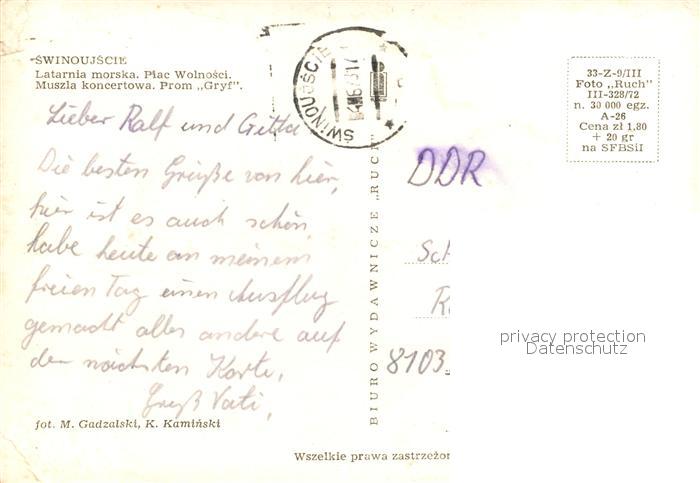 ŚWINOUJŚCIE
Latarnia morska. Plac Wolności.
Muszla koncertowa. Prom „Gryf".
ŚWINOUJŚCIE
33-Z-9/III
Foto „Ruch"
III-328/72
n. 30 000 egz.
A-26
Cena zł 1,80
+ 20 gr
na SFBSiI
Lieber Ralf und Gitta
Die besten Grüße von hier,
hier ist es auch schön
habe heute an meinem
freien Tag einen Ausflug
gemacht alles andere auf
der nächsten Karte.
Gruß Vati,
fot. M. Gadzalski, K. Kamiński
BIURO WYDAWNICZE „RUCH"
DDR
Sch
8103
privacy protection
Datenschutz
Wszelkie prawa zastrzeżon